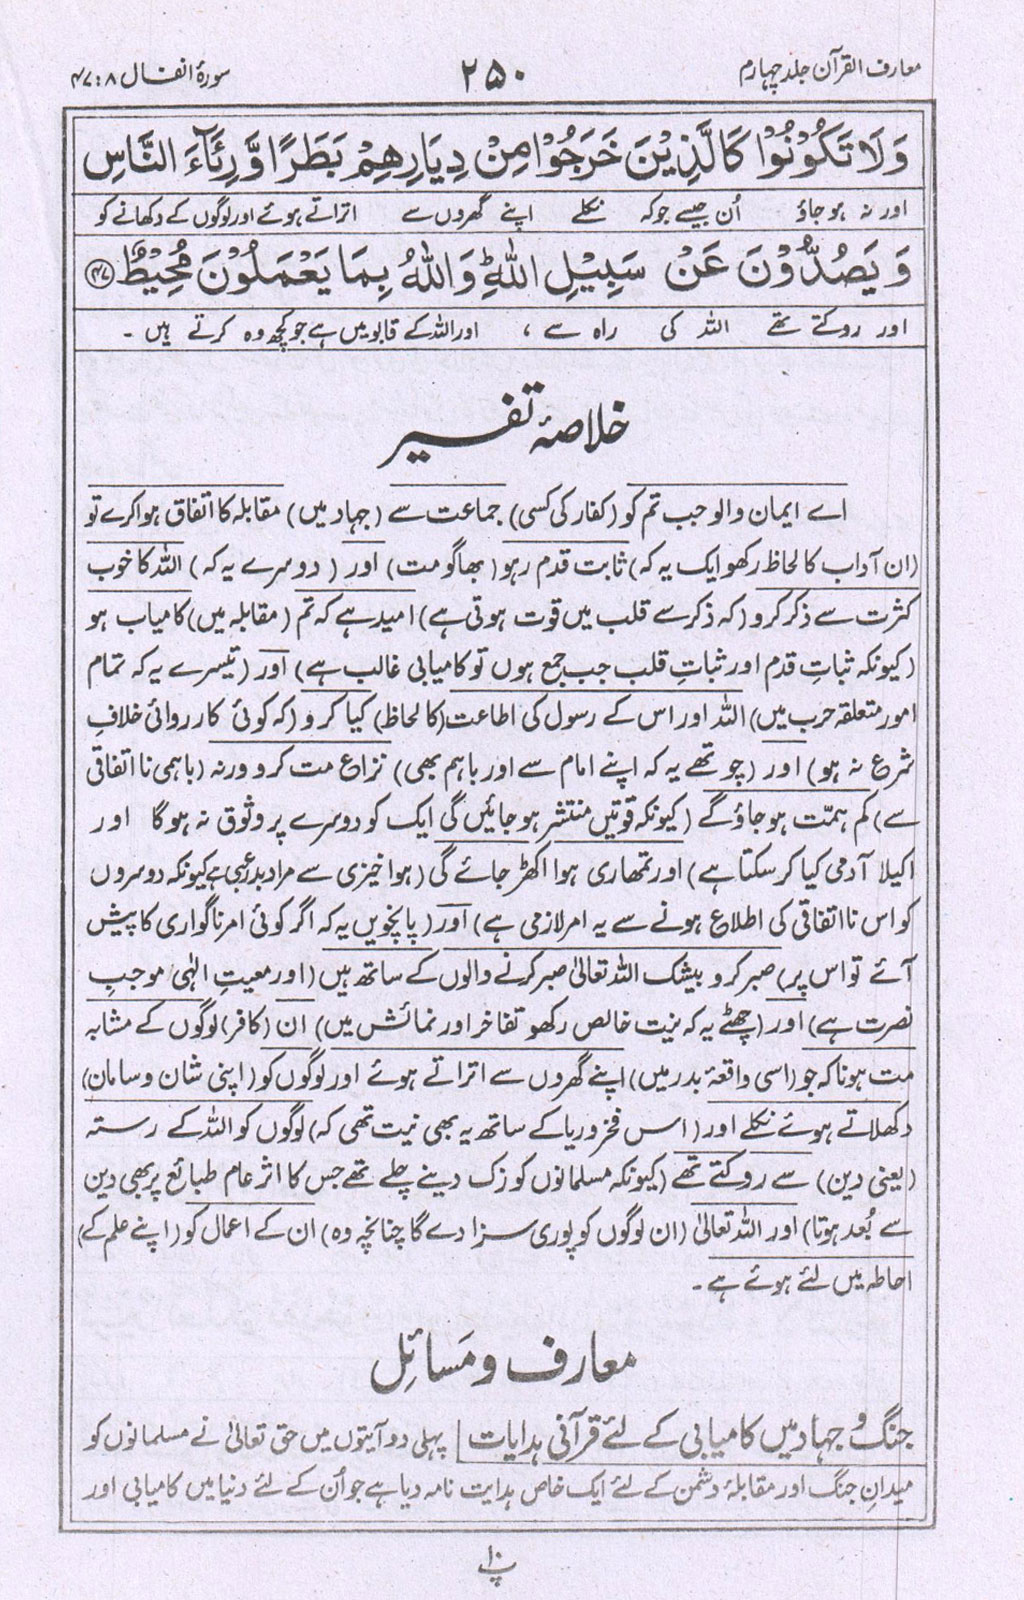 معارف القرآن جلد چہارم
۲۵۰
سورۂ انفال ۸ : ۴۷
وَلَا تَكُوْنُوْا كَالَّذِيْنَ خَرَجُوْا مِنْ دِيَارِهِمْ بَطَرًا وَّ رِئَآءَ النَّاسِ
اور نہ ہو جاؤ اُن جیسے جو کہ نکلے اپنے گھروں سے اتراتے ہوئے اور لوگوں کے دکھانے کو
وَ يَصُدُّوْنَ عَنْ سَبِيْلِ اللّٰهِ ؕ وَاللّٰهُ بِمَا يَعْمَلُوْنَ مُحِيْطٌ ﴿۴۷﴾
اور روکتے تھے اللہ کی راہ سے ، اور اللہ کے قابو میں ہے جو کچھ وہ کرتے ہیں ۔
خلاصۂ تفسیر
اے ایمان والو جب تم کو (کفار کی کسی) جماعت سے (جہاد میں) مقابلہ کا اتفاق ہوا کرے تو
(ان آداب کا لحاظ رکھو ایک یہ کہ) ثابت قدم رہو (بھاگو مت) اور (دوسرے یہ کہ) اللہ کا خوب
کثرت سے ذکر کرو (کہ ذکر سے قلب میں قوت ہوتی ہے) امید ہے کہ تم (مقابلہ میں) کامیاب ہو
(کیونکہ ثباتِ قدم اور ثباتِ قلب جب جمع ہوں تو کامیابی غالب ہے) اور (تیسرے یہ کہ تمام
امور متعلقہ حرب میں) اللہ اور اس کے رسول کی اطاعت (کا لحاظ) کیا کرو (کہ کوئی کارروائی خلافِ
شرع نہ ہو) اور (چوتھے یہ کہ اپنے امام سے اور باہم بھی) نزاع مت کرو ورنہ (باہمی نااتفاقی
سے) کم ہمّت ہو جاؤ گے (کیونکہ قوتیں منتشر ہو جائیں گی ایک کو دوسرے پر وثوق نہ ہو گا اور
اکیلا آدمی کیا کر سکتا ہے) اور تمھاری ہوا اکھڑ جائے گی (ہوا خیزی سے مراد بدرعبی ہے کیونکہ دوسروں
کو اس نااتفاقی کی اطلاع ہونے سے یہ امر لازمی ہے) اور (پانچویں یہ کہ اگر کوئی امر ناگواری کا پیش
آئے تو اس پر) صبر کرو بیشک اللہ تعالیٰ صبر کرنے والوں کے ساتھ ہیں (اور معیتِ الٰہی موجبِ
نصرت ہے) اور (چھٹے یہ کہ نیت خالص رکھو تفاخر اور نمائش میں) ان (کافر) لوگوں کے مشابہ
مت ہونا کہ جو (اسی واقعۂ بدر میں) اپنے گھروں سے اتراتے ہوئے اور لوگوں کو (اپنی شان و سامان)
دکھلاتے ہوئے نکلے اور (اس فخر و ریا کے ساتھ یہ بھی نیت تھی کہ) لوگوں کو اللہ کے رستہ
(یعنی دین) سے روکتے تھے (کیونکہ مسلمانوں کو زک دینے چلے تھے جس کا اثر عام طبائع پر بھی دین
سے بُعد ہوتا) اور اللہ تعالیٰ (ان لوگوں کو پوری سزا دے گا چنانچہ وہ) ان کے اعمال کو (اپنے علم کے)
احاطہ میں لئے ہوئے ہے ۔
معارف و مسائل
جنگ و جہاد میں کامیابی کے لئے قرآنی ہدایات | پہلی دو آیتوں میں حق تعالیٰ نے مسلمانوں کو
میدانِ جنگ اور مقابلۂ دشمن کے لئے ایک خاص ہدایت نامہ دیا ہے جو اُن کے لئے دنیا میں کامیابی اور